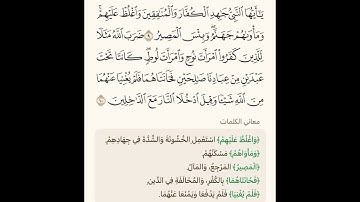 يَـٰٓأَيُّهَا ٱلنَّبِىُّ جَـٰهِدِ ٱلْكُفَّارَ وَٱلْمُنَـٰفِقِينَ وَٱغْلُظْ عَلَيْهِمْ
وَمَأْوَىٰهُمْ جَهَنَّمُ وَبِئْسَ ٱلْمَصِيرُ ٩ ضَرَبَ ٱللَّهُ مَثَلًا
لِّلَّذِينَ كَفَرُوا۟ ٱمْرَأَتَ نُوحٍ وَٱمْرَأَتَ لُوطٍ كَانَتَا تَحْتَ
عَبْدَيْنِ مِنْ عِبَادِنَا صَـٰلِحَيْنِ فَخَانَتَاهُمَا فَلَمْ يُغْنِيَا عَنْهُمَا
مِنَ ٱللَّهِ شَيْـًٔا وَقِيلَ ٱدْخُلَا ٱلنَّارَ مَعَ ٱلدَّٰخِلِينَ ١٠
معاني الكلمات
﴿وَاغْلُظْ عَلَيْهِمْ﴾ اسْتَعْمِلِ الْخُشُونَةَ وَالشِّدَّةَ فِي جِهَادِهِمْ.
﴿وَمَأْوَاهُمْ﴾ مَسْكَنُهُمْ.
﴿الْمَصِيرُ﴾ الْمَرْجِعُ، وَالْمَآلُ.
﴿فَخَانَتَاهُمَا﴾ بِالْكُفْرِ، وَالْمُخَالَفَةِ فِي الدِّينِ.
﴿فَلَمْ يُغْنِيَا﴾ فَلَمْ يَدْفَعَا وَيَمْنَعَا عَنْهُمَا.